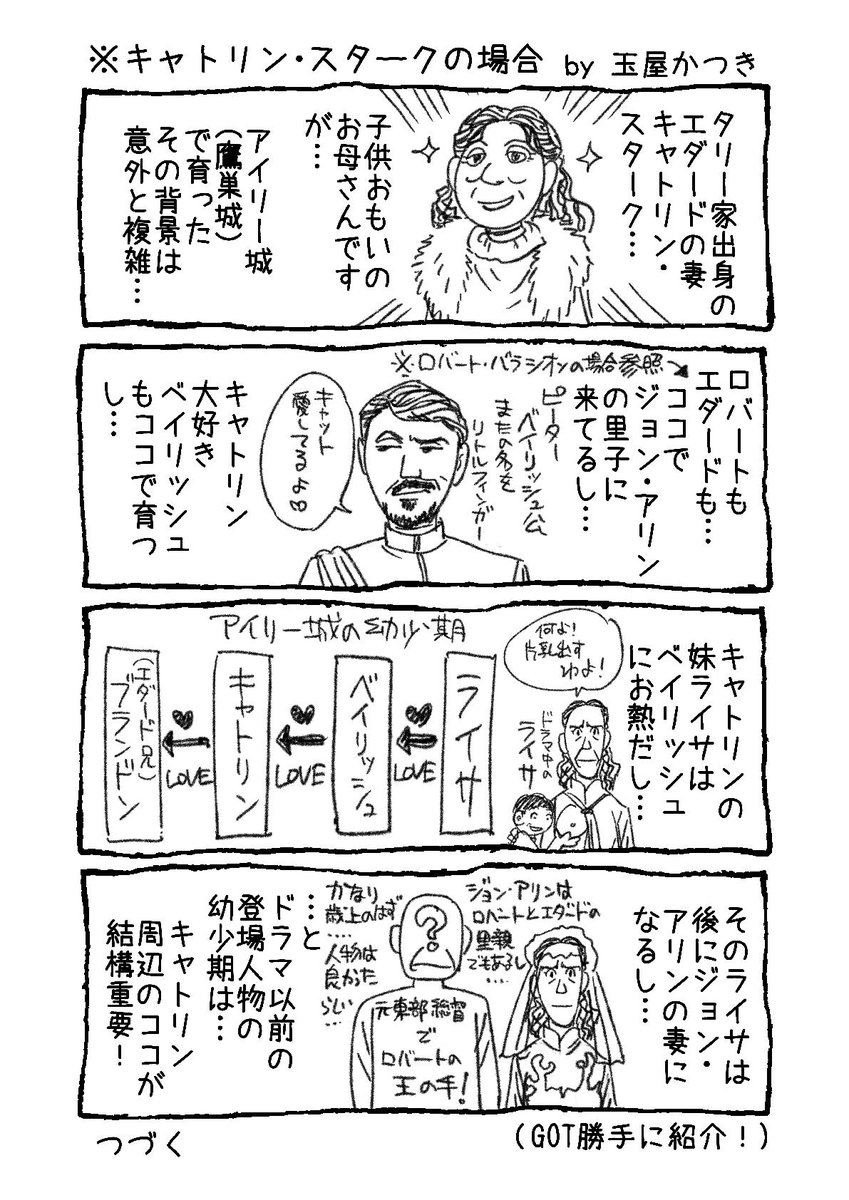 ※キャトリン・スタークの場合 by 玉屋かつき
タリー家出身の
エダードの妻
キャトリン・
スターク…
子供おもいの
お母さんです
が…
アイリー城
(鷹巣城)
で育った
その背景は
意外と複雑…
※・ロバート・バラシオンの場合参照
ロバートも
エダードも…
ココで
ジョン・アリン
の里子に
来てるし…
ピーター
ベイリッシュ公
またの名を
リトルフィンガー
キャット
愛してるよ♡
キャトリン
大好き
ベイリッシュ
もココで育つ
し…
キャトリンの
妹ライサは
ベイリッシュ
にお熱だし…
何よ!
片乳出す
わよ!
ドラマ中の
ライサ
アイリー城の幼少期
ライサ
LOVE
ベイリッシュ
LOVE
キャトリン
LOVE
(エダード兄)
ブランドン
そのライサは
後にジョン・
アリンの妻に
なるし…
ジョン・アリンは
ロバートとエダードの
里親
でもあるし
….
?
元東部総督
で
ロバートの
王の手!
かなり
歳上のはず
…
人物は
良かった
らしい…
…と
ドラマ以前の
登場人物の
幼少期は…
キャトリン
周辺のココが
結構重要!
つづく
(GOT勝手に紹介!)